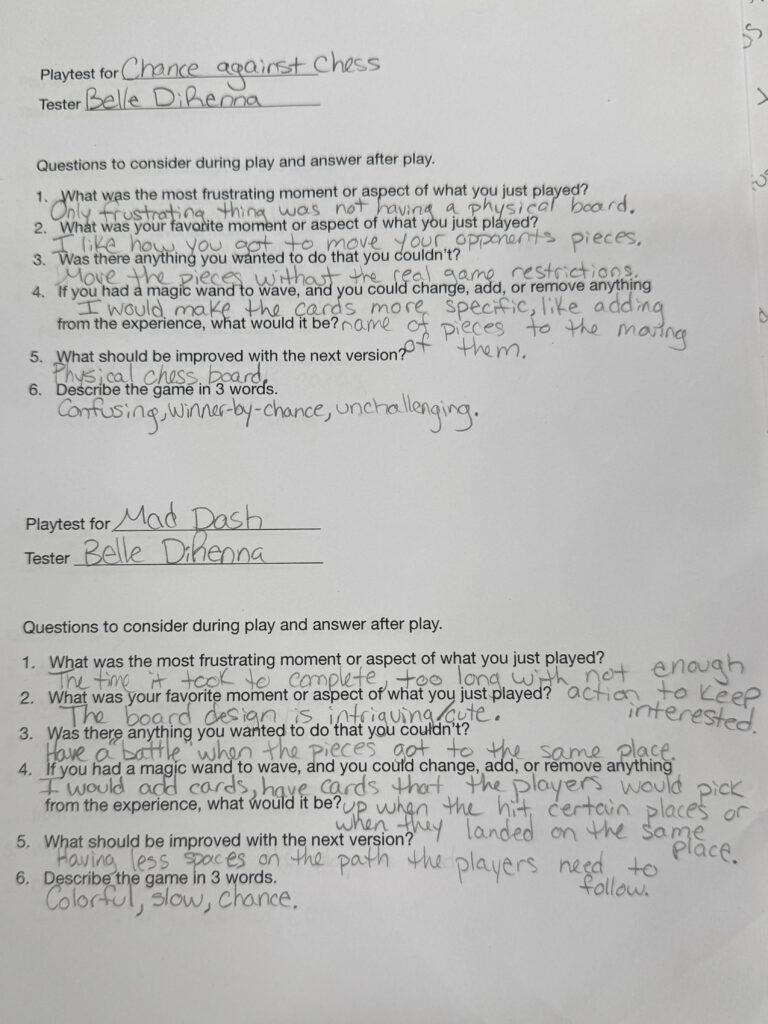 Playtest for Chance against Chess
Tester Belle DiRenna
Questions to consider during play and answer after play.
1. What was the most frustrating moment or aspect of what you just played?
Only frustrating thing was not having a physical board.
2. What was your favorite moment or aspect of what you just played?
I like how you got to move your opponents pieces.
3. Was there anything you wanted to do that you couldn't?
Move the pieces without the real game restrictions.
4. If you had a magic wand to wave, and you could change, add, or remove anything
I would make the cards more specific, like adding
from the experience, what would it be? name of pieces to the moving
of them.
5. What should be improved with the next version?
Physical chess board.
6. Describe the game in 3 words.
Confusing, winner-by-chance, unchallenging.
Playtest for Mad Dash
Tester Belle DiRenna
Questions to consider during play and answer after play.
1. What was the most frustrating moment or aspect of what you just played?
The time it took to complete, too long with not enough
2. What was your favorite moment or aspect of what you just played? action to keep
The board design is intriguing/cute. interested.
3. Was there anything you wanted to do that you couldn't?
Have a "battle" when the pieces got to the same place.
4. If you had a magic wand to wave, and you could change, add, or remove anything
I would add cards, have cards that the players would pick
from the experience, what would it be? up when the hit certain places or
when they landed on the same
5. What should be improved with the next version? place.
Having less spaces on the path the players need to
6. Describe the game in 3 words. follow.
Colorful, slow, chance.